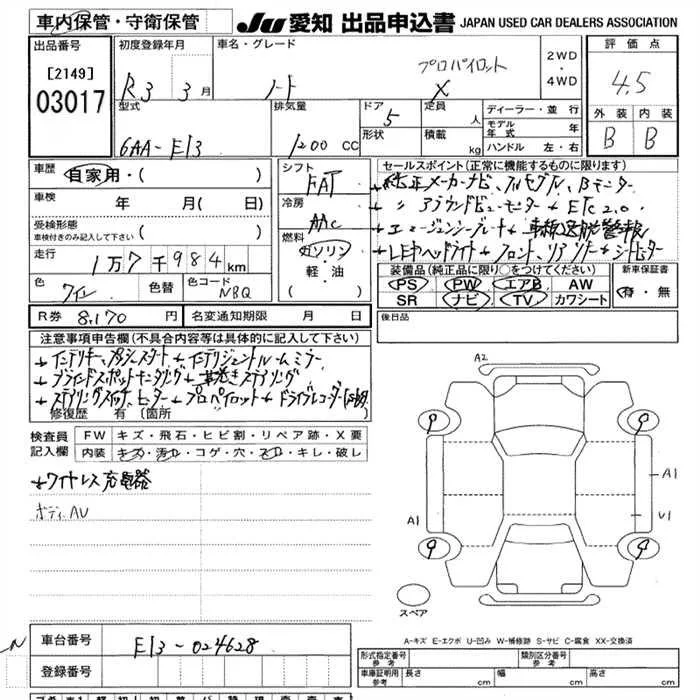 車内保管・守衛保管
JU 愛知 出品申込書 JAPAN USED CAR DEALERS ASSOCIATION
出品番号
[2149]
03017
初度登録年月
R3 3月
車名・グレード
ノート
プロパイロット
X
2WD
・
4WD
評価点
4.5
外装 内装
B B
型式
6AA-E13
排気量
1200 CC
ドア
5
形状
定員
人
積載
kg
ディーラー・並行
モデル年式 年
ハンドル 左・右
車歴
自家用・( )
車検 年 月( 日)
受検形態
車検付きのみ記入して下さい ( )
走行 1万7千984km
色 ワイン 色替 色コード NBQ
R券 8,170円 名変通知期限 月 日
シフト
FAT
冷房
AAC
燃料
ガソリン
軽・油
( )
セールスポイント(正常に機能するものに限ります)
+純正メーカーナビ、フルセグTV、Bモニター
+〃アラウンドビューモニター+ETC2.0
+LEDヘッドライト+フロント、リアソナー+シートヒーター
装備品(純正品に限り○をつけてください)
PS PW エアB AW
SR ナビ TV カワシート
新車保証書
有・無
後日品
注意事項申告欄(不具合内容等は具体的に記入して下さい)
+インテリキー、プッシュスタート+インテリジェントルームミラー
+ブラインドスポットモニタリング+革巻きステアリング
+ステアリングスイッチ、ヒーター+プロパイロット+ドライブレコーダー
修復歴 有 〔箇所
検査員記入欄
FW キズ・飛石・ヒビ割・リペア跡・X要
内装 キズ・汚れ・コゲ・穴・スレ・キレ・破レ
+ワイヤレス充電器
ボディAU
A2
9 9
A1 A1
U1
9 9
スペア
A-キズ E-エクボ U-凹み W-補修跡 S-サビ C-腐食 XX-交換済
N
車台番号 E13-024628
登録番号
形式指定番号 参考
類別区分番号 参考
車庫証明用 参考 長さ cm 幅 cm 高さ cm